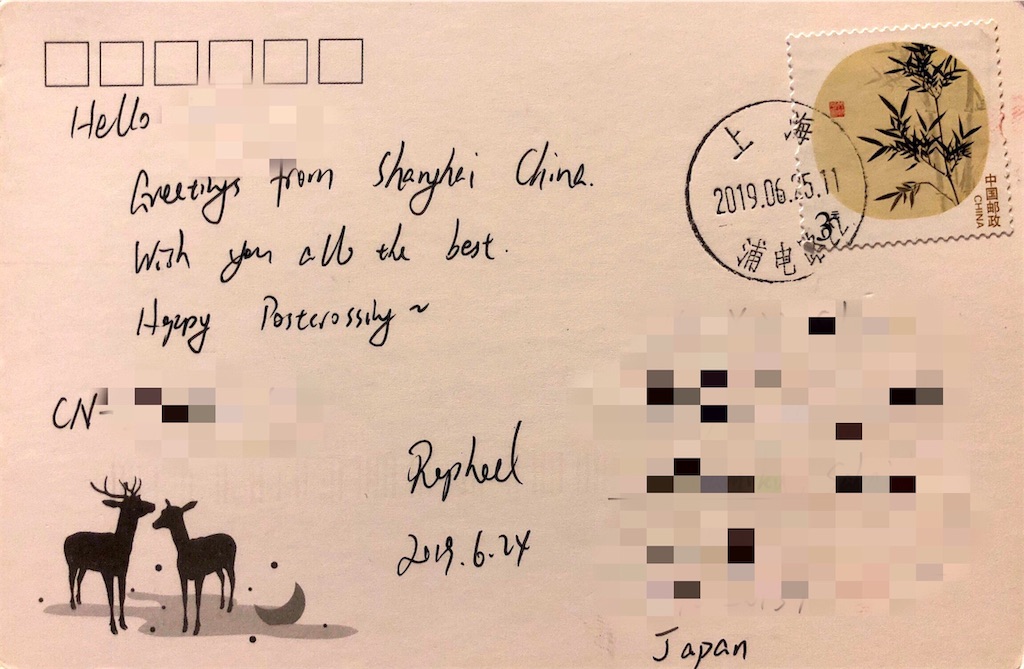 Hello
Greetings from Shanghai China.
Wish you all the best.
Happy Postcrossing~
CN-
Rapheel
2019.6.24
Japan
上海
2019.06.25.11
浦电路
中国邮政
CHINA